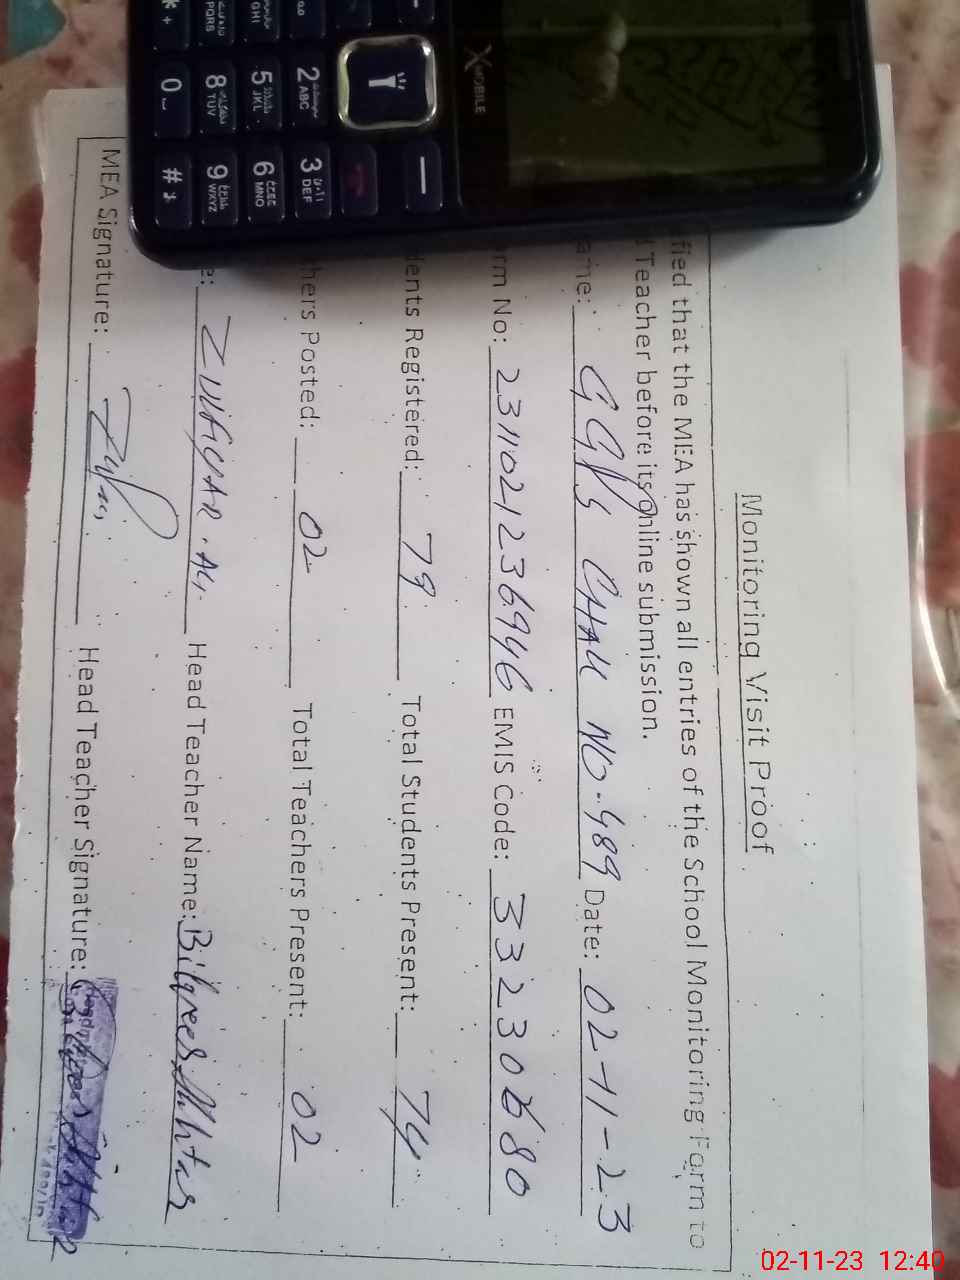 Monitoring Visit Proof
fied that the MEA has shown all entries of the School Monitoring Form to
Teacher before its online submission.
ame: GGPS CHAK NO-489 Date: 02-11-23
rm No: 2311021236946 EMIS Code: 33230680
dents Registered: 79 Total Students Present: 74
hers Posted: 02 Total Teachers Present: 02
e: Zulfiqar Ali Head Teacher Name: Bilqees Akhtar
MEA Signature: Head Teacher Signature:
XMOBILE
2 ABC
3 DEF
GHI
5 JKL
6 MNO
PQRS
8 TUV
9 WXYZ
* +
0
#
02-11-23 12:40